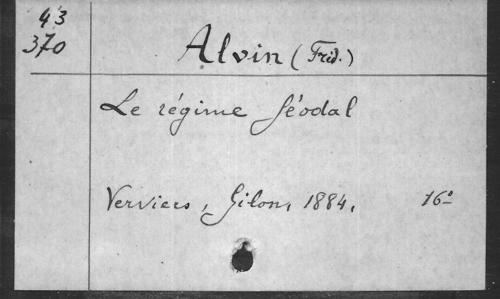 43
370
Alvin (Fréd.)
Le régime féodal
Verviers, Gilon, 1884, 16º